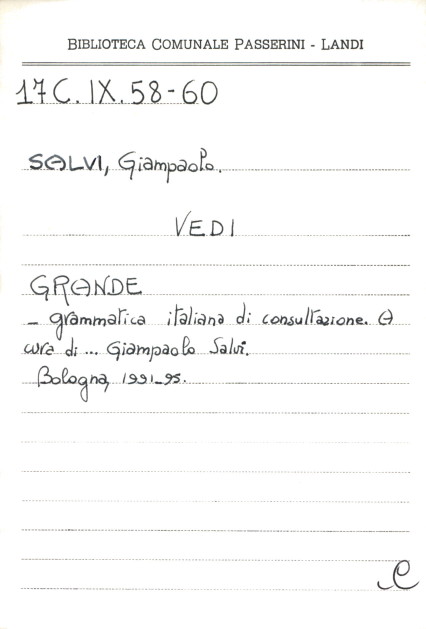 BIBLIOTECA COMUNALE PASSERINI - LANDI
17C. IX. 58-60
SALVI, Giampaolo.
VEDI
GRANDE
– grammatica italiana di consultazione. A
cura di ... Giampaolo Salvi.
Bologna, 1991-95.